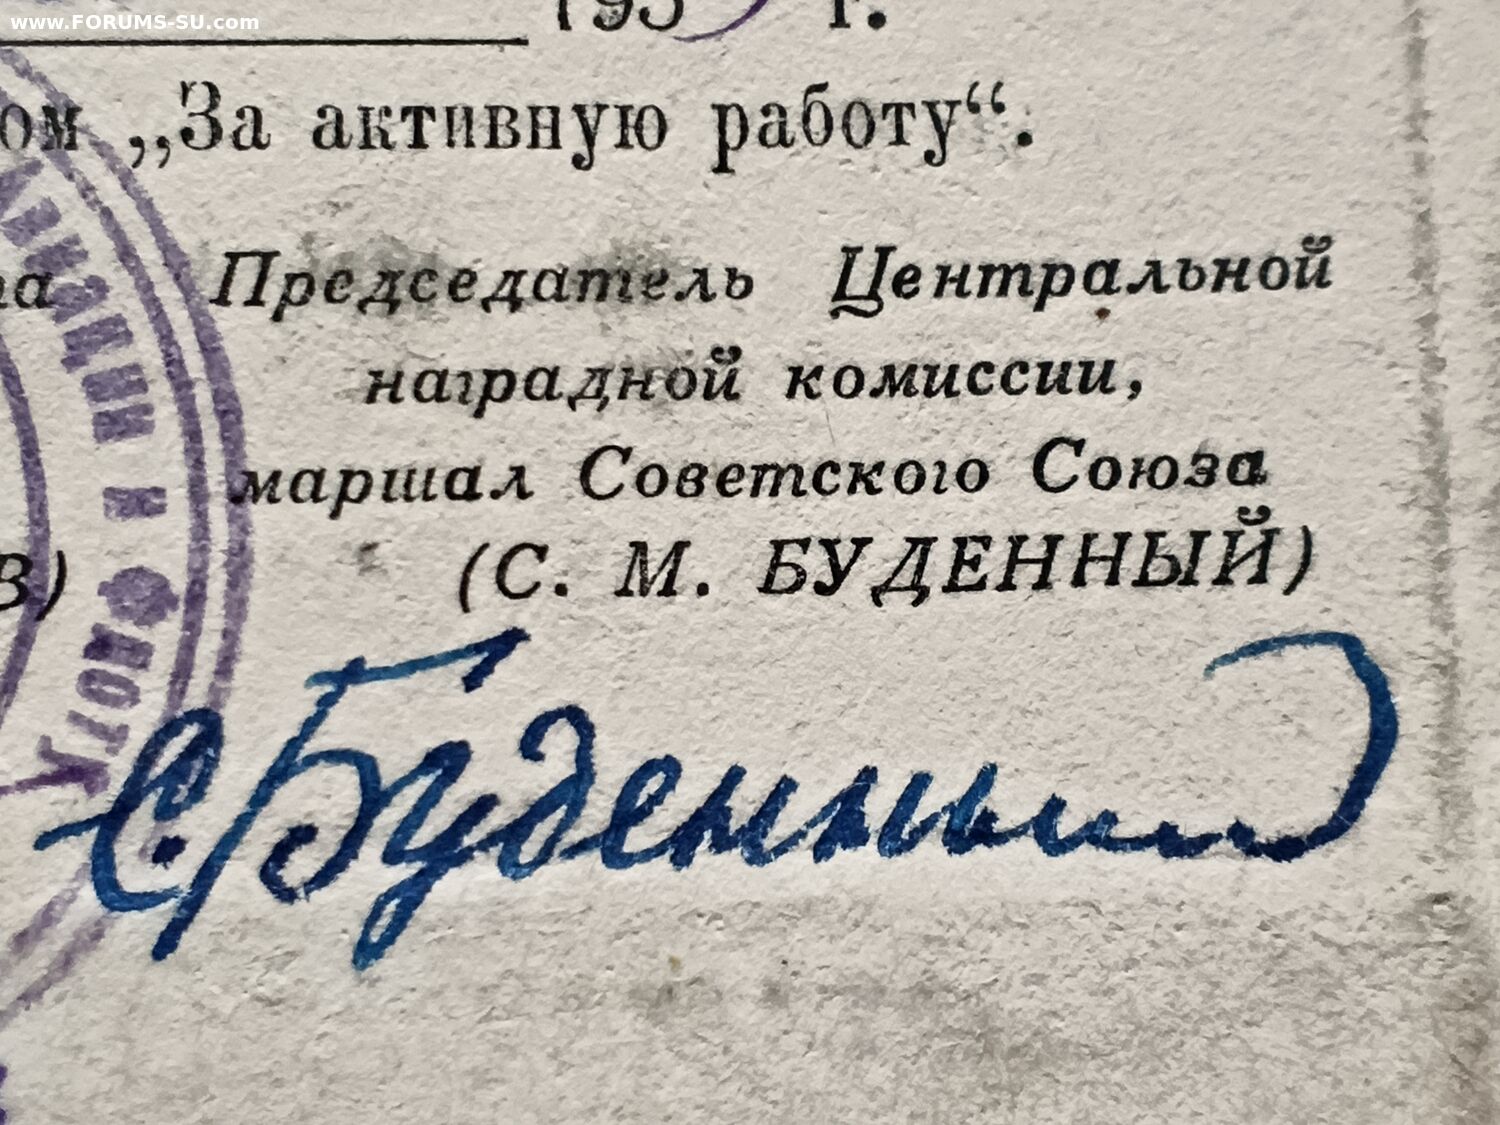 www.FORUMS-SU.com
195 г.
ом „За активную работу“.
та Председатель Центральной
наградной комиссии,
маршал Советского Союза
В) (С. М. БУДЕННЫЙ)
С. Буденный
АВИАЦИИ И ФЛОТУ